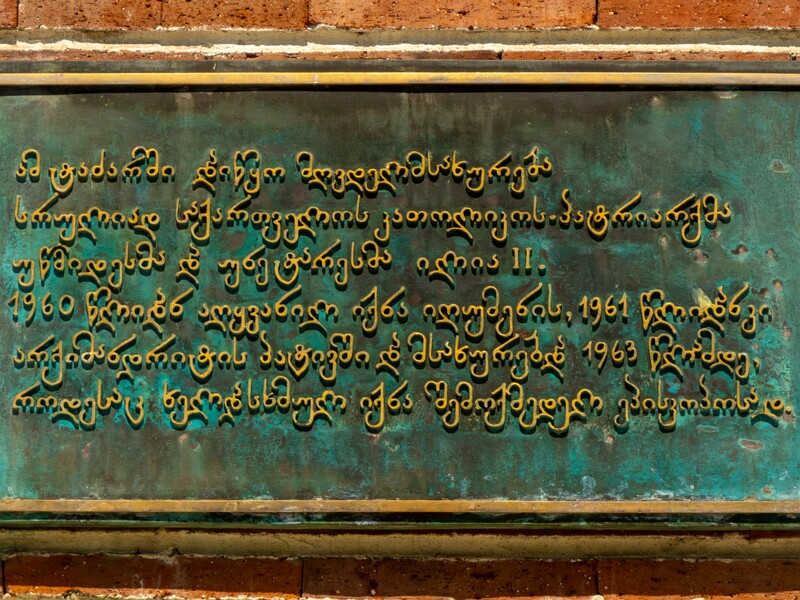 ამ ტაძარში დაიწყო მღვდელმსახურება
სრულიად საქართველოს კათოლიკოს-პატრიარქმა
უწმიდესმა და უნეტარესმა ილია II.
1960 წლიდან აღყვანილ იქნა იღუმენის, 1961 წლიდან კი
არქიმანდრიტის პატივში და მსახურებდა 1963 წლამდე,
როდესაც ხელდასხმულ იქნა შემოქმედელ ეპისკოპოსად.